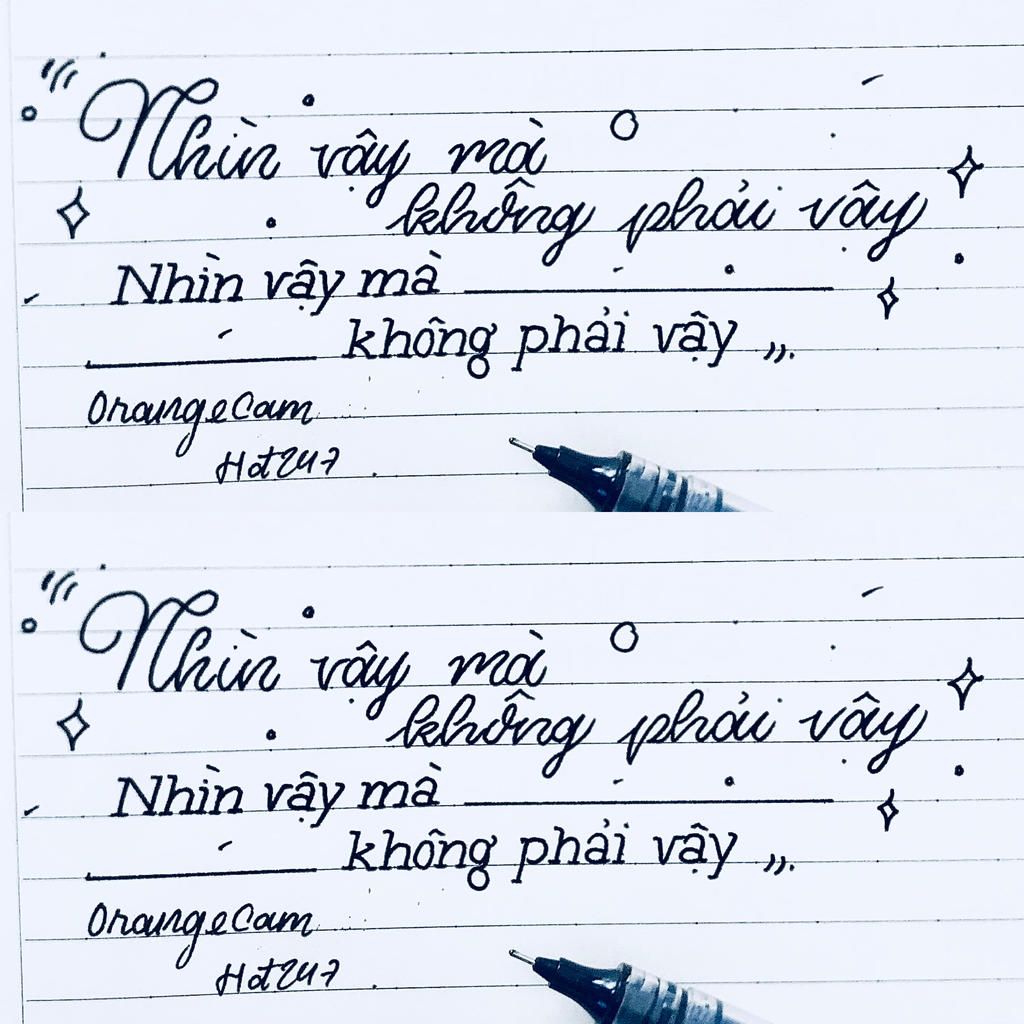 "Nhìn vậy mà
không phải vậy
Nhìn vậy mà
không phải vậy ,,.
OrangeCam
Hot247
"Nhìn vậy mà
không phải vậy
Nhìn vậy mà
không phải vậy ,,.
OrangeCam
Hot247